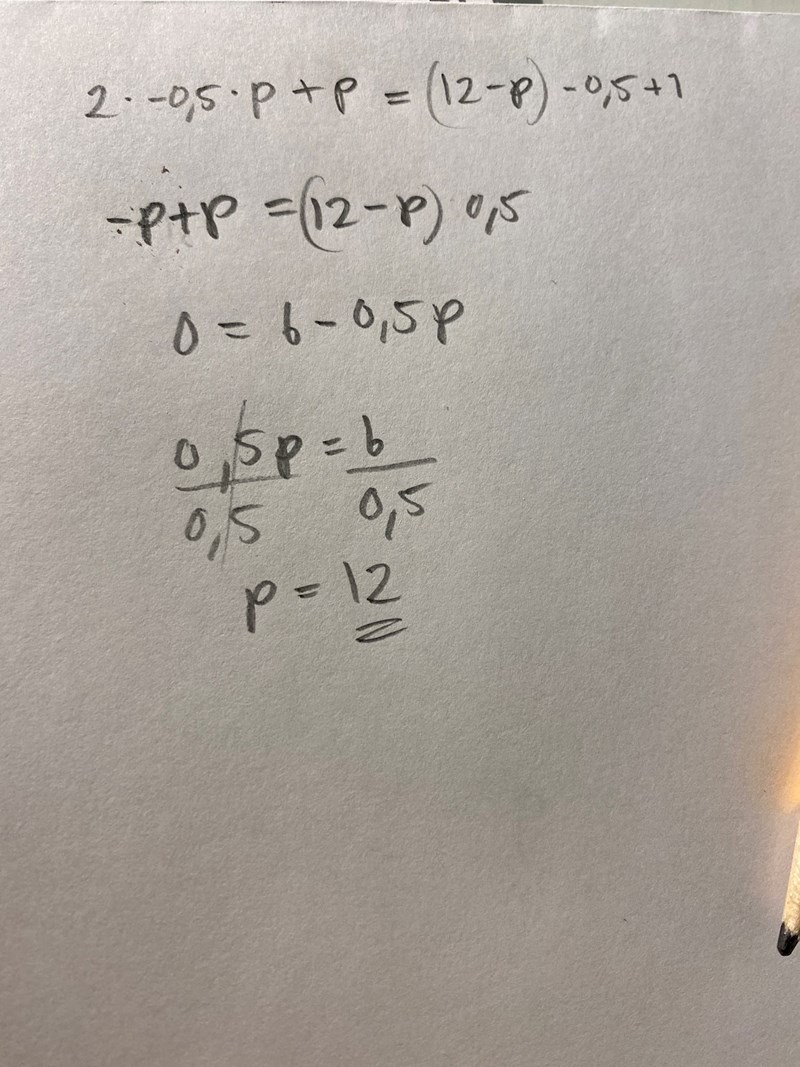 2 · -0,5 · p + p = (12-p) -0,5+1
-p+p = (12-p) 0,5
0 = 6 - 0,5p
0,5p = 6
0,5 0,5
p = 12